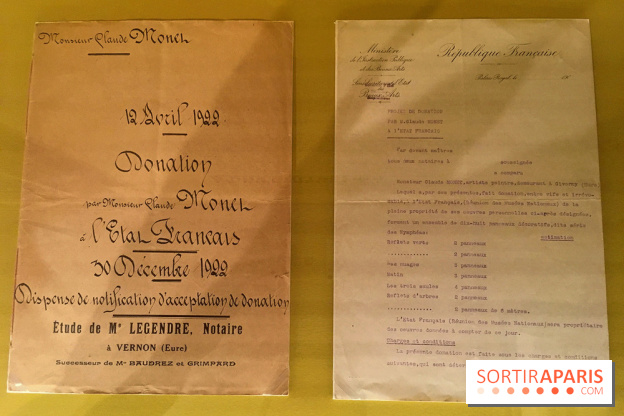 Monsieur Claude Monet
12 Avril 1922
Donation
par Monsieur Claude Monet
à l'Etat Français
30 Décembre 1922
Dispense de notification d'acceptation de donation
Étude de Me LEGENDRE, Notaire
à VERNON (Eure)
Successeur de Mes BAUDREZ et GRIMPARD
Ministère
de l'Instruction Publique
et des Beaux-Arts
Beaux-Arts
République Française
Palais-Royal, le
PROJET DE DONATION
PAR M.CLAUDE MONET
A L'ETAT FRANCAIS
Par devant maîtres
tous deux notaires à soussignés
a comparu
Monsieur Claude MONET, artiste peintre, demeurant à Giverny
Lequel a, par ces présentes, fait donation, entre vifs et
à l'Etat Français, (Réunion des Musées Nationaux) de la
pleine propriété de ses oeuvres personnelles ci-après désignées,
formant un ensemble de dix-huit panneaux décoratifs, dite série
des Nymphéas:
Reflets verts 2 panneaux
............ 2 panneaux
Les nuages 3 panneaux
Matin 3 panneaux
Les trois saules 4 panneaux
Reflets d'arbres 2 panneaux
............ de 6 mètres.
L'Etat Français (Réunion des Musées Nationaux) sera propriétaire
des oeuvres données à compter de ce jour.
Charges et conditions
La présente donation est faite sous les charges et conditions
suivantes, qui sont
SORTIRAPARIS
.COM